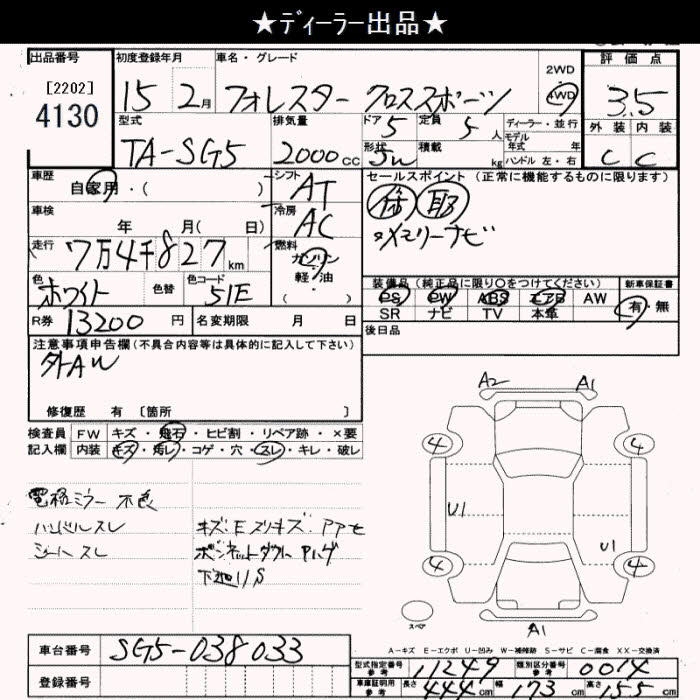 ★ディーラー出品★
出品番号 初度登録年月 車名・グレード 2WD 評価点
[2202]
4130
15 2月 フォレスター クロススポーツ 4WD 3.5
型式 排気量 ドア 定員 ディーラー・並行 外装 内装
TA-SG5 2000cc 5 5人 モデル年式 年 C C
形状 5W 積載 kg ハンドル 左・右
車歴 自家用・( ) シフト AT セールスポイント (正常に機能するものに限ります)
車検 年 月( 日) 冷房 AC
走行 7万4千827km 燃料 ガソリン 軽・油 ( )
メモリーナビ
色 ホワイト 色替 色コード 51E
装備品(純正品に限り○をつけてください) 新車保証書
PS PW ABS エアB AW 有・無
SR ナビ TV 本革
R券 13200円 名変期限 月 日 後日品
注意事項申告欄(不具合内容等は具体的に記入して下さい)
外AW
修復歴 有 [箇所 ]
検査員 FW キズ・飛石・ヒビ割・リペア跡・×要
記入欄 内装 キズ・汚レ・コゲ・穴・スレ・キレ・破レ
電格ミラー不良
ハンドルスレ
シートスレ
下廻りS
A2 A1
4 4
U1
U1
4 4
スペア
A1
A-キズ E-エクボ U-凹み W-補修跡 S-サビ C-腐食 XX-交換済
車台番号 SG5-038033
登録番号
型式指定番号 参考 11249 類別区分番号 参考 0014
車庫証明用 参考 長さ 444cm 幅 173cm 高さ 155cm